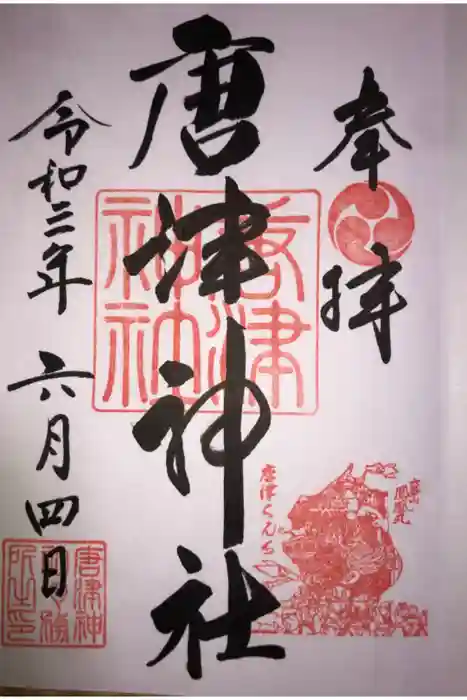 奉拝
唐津神社
唐津神社
令和三年 六月四日
唐津くんち
唐津神